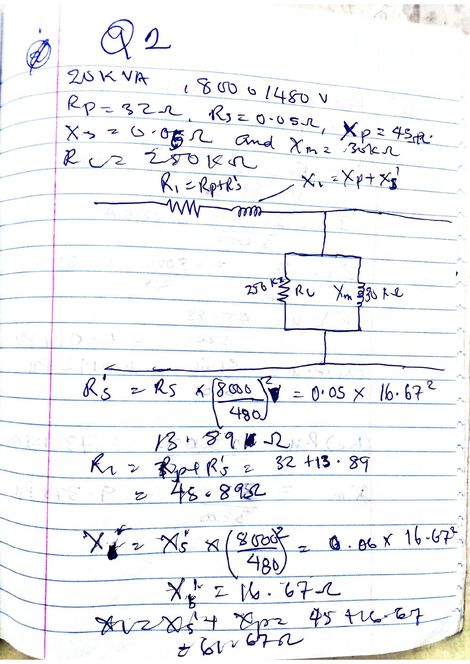 Q2
20KVA , 8000/480 V
Rp = 32Ω, Rs = 0.05Ω, Xp = 45Ω.
Xs = 0.06Ω and Xm = 30kΩ
Rc = 250KΩ
R1 = Rp+R's X1 = Xp + X's
250kΩ Rc Xm 30kΩ
R's = Rs × (8000/480)² = 0.05 × 16.67²
13.89 Ω
R1 = Rp+R's = 32 + 13.89
= 45.89Ω
X's = Xs × (8000/480)² = 0.06 × 16.67²
X's = 16.67Ω
X1 = X's + Xp = 45 + 16.67
= 61.67Ω